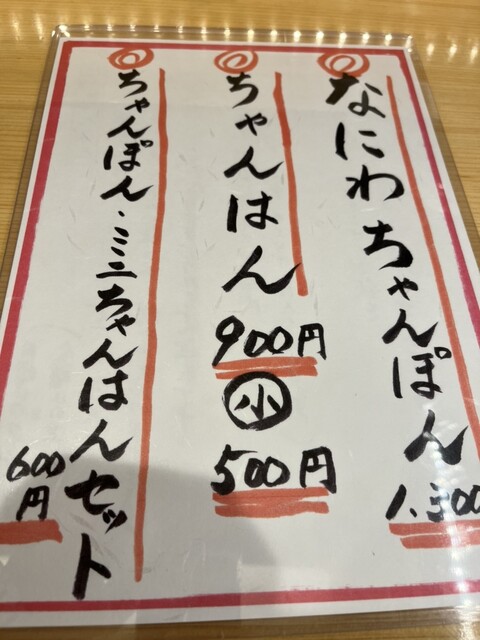 なにわちゃんぽん
1.300
ちゃんはん
900円
小
500円
ちゃんぽん・ミニちゃんはんセット
600円